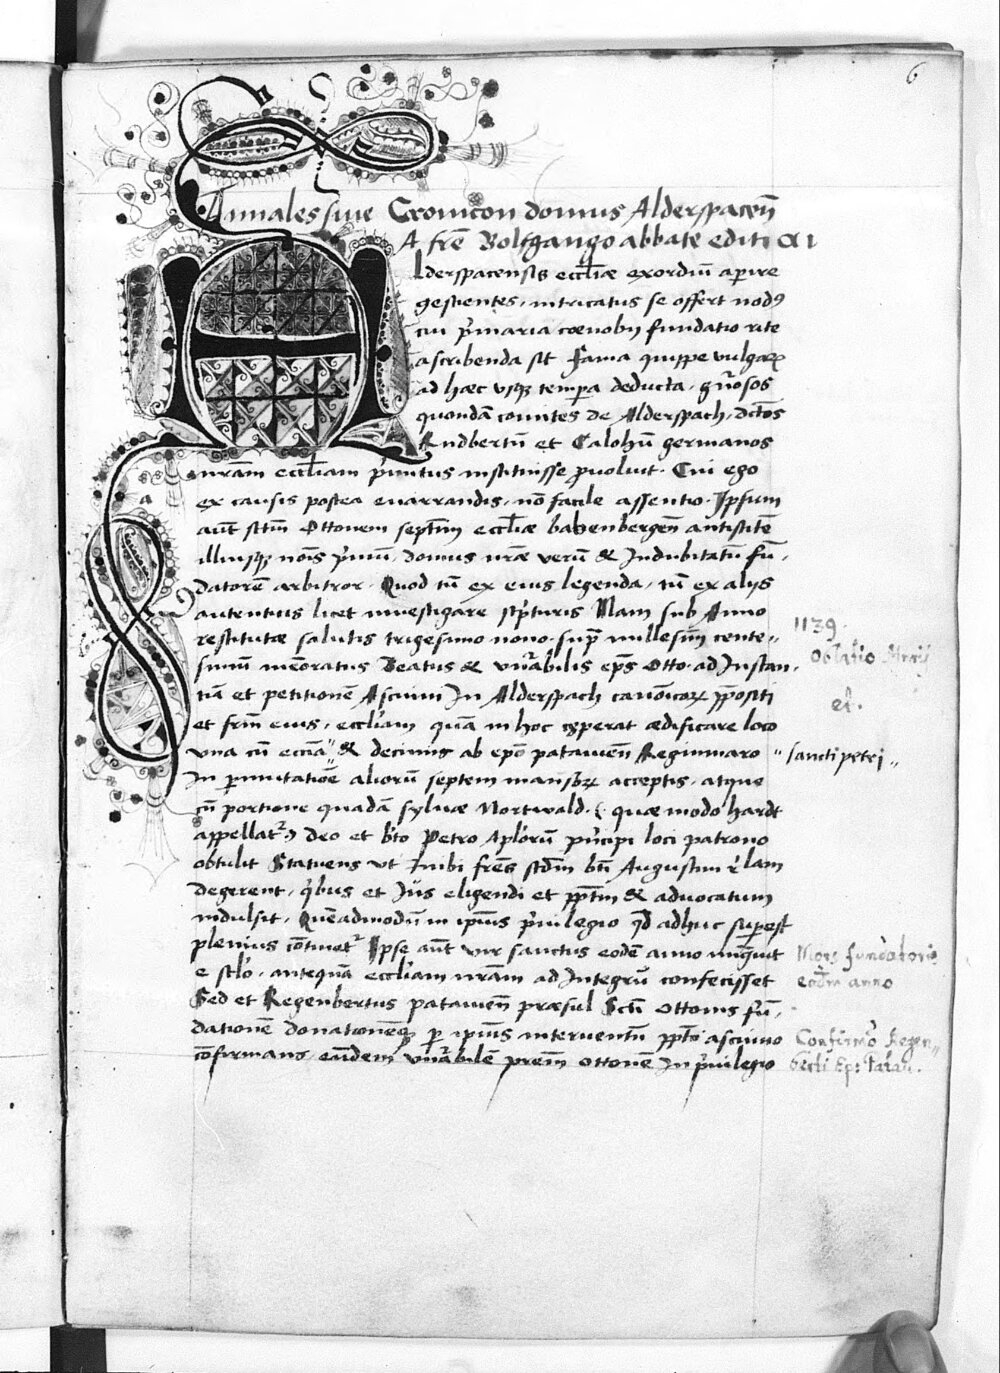 6
Annales sive Cronicon domus Alderspaceñ
A frē Volfgango abbate editi
Alderspacensis eccl̄iæ exordiū aperire
gestientes, intricatus se offert nodꝰ
cui p̓maria cœnobij fundatio rite
ascribenda sit Fama quippe vulgarꝫ
ad hæc vsqꝫ tempora deducta, gn̓osos
quondā comites de Alderspach, dictos
Rudbertū et Calohū germanos
nrām eccl̄iam p̓mitus instituisse ꝓvoluit. Cui ego
ex causis postea enarrandis, nō facile assentio. Ipsum
aūt sctm̄ Ottonem septm̄ eccl̄iæ babenbergeñ antistitē
illiusqꝫ nōis p̓mū, domus nr̄æ verū & Indubitatū fū-
datorē arbitror. Quod tū ex eius legenda, tū ex alijs
autenticis licet investigare scp̓turis Nam sub Anno
restitutæ salutis trigesimo nono supꝰ millesim̄ cente-
simū memoratus Beatus & vn̓abilis ep̄s Otto, ad Instan-
tiā et petitionē Ascuini In Alderspach canōicorꝫ p̄positi
et frm̄ eius, eccl̄iam quā in hoc cꝑerat ædificare loco
vna cū eccīa & decimis ab epō pataviēn Reginmaro
In pmutatiōe aliorū septem mansorꝫ acceptis, atque
cū portione quadā sylvæ Nortwald. (quæ modo hardt
appellatꝰ) deo et bt̄o Petro Apl̄orū prīncipi loci patrono
obtulit Statuens vt Inibi frēs scdm̄ btī Augustini r̓lam
degerent, q̓bus et Iūs eligendi et ppt̄m & advocatum
indulsit. Quēadmodū in ip̄ius p̓vilegio qd̄ adhuc superest
plenius cōtinetꝰ Ipse aūt vir sanctus eodē anno migravit
e scl̄o, antequā eccl̄iam nrām ad Integrū confecisset
Sed et Regenbertus pataviēn præsul Sctī Ottonis fū-
dationē donationēqꝫ p ip̄ius interventū pp̄to ascuino
cōfirmans, eūdem vn̓abilē prem̄ Ottonē In p̓vilegio
1139.
Oblatio
et.
„ sancti petri „
Mors fundatoris
eodm̄ anno
Confirmō Regen-
berti Ep: Patav.